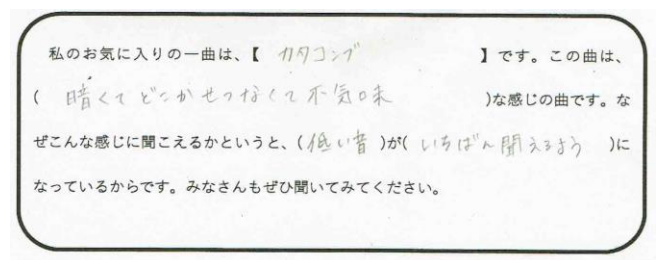 私のお気に入りの一曲は、【 カタコンブ 】です。この曲は、
( 暗くてどこかせつなくて不気味 )な感じの曲です。な
ぜこんな感じに聞こえるかというと、(低い音)が( いちばん聞えるよう )に
なっているからです。みなさんもぜひ聞いてみてください。